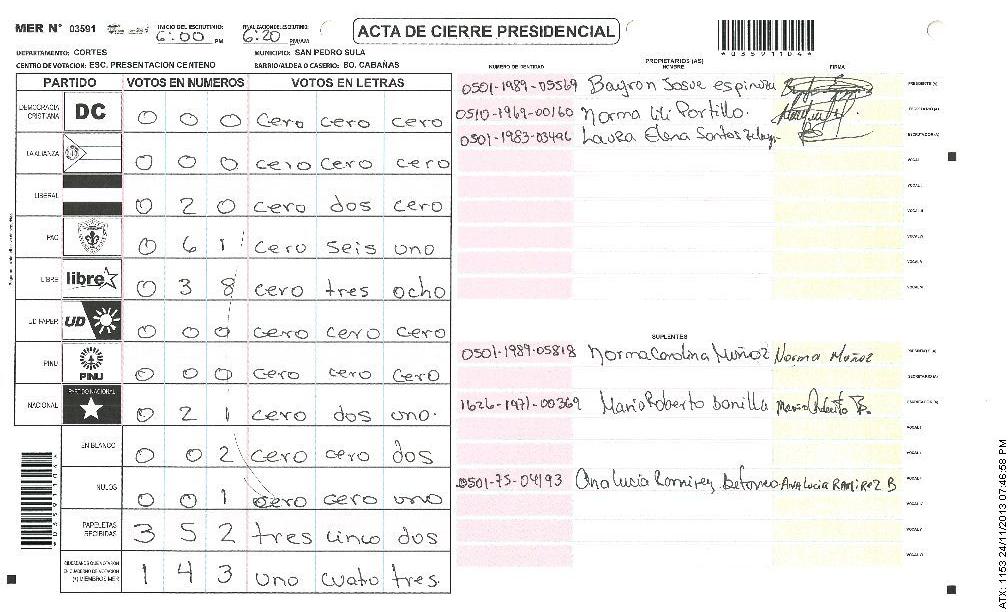 MER N° 03591 INICIO DEL ESCRUTINIO: 6:00 PM FINALIZACION DEL ESCRUTINIO: 6:20 PM/AM ACTA DE CIERRE PRESIDENCIAL
*03591104*
DEPARTAMENTO: CORTES MUNICIPIO: SAN PEDRO SULA
CENTRO DE VOTACION: ESC. PRESENTACION CENTENO BARRIO/ALDEA O CASERIO: BO. CABAÑAS
PARTIDO VOTOS EN NUMEROS VOTOS EN LETRAS
DEMOCRACIA CRISTIANA DC 0 0 0 cero cero cero
LA ALIANZA 0 0 0 cero cero cero
LIBERAL 0 2 0 cero dos cero
PAC 0 6 1 cero seis uno
LIBRE libre 0 3 8 cero tres ocho
UD FAPER UD 0 0 0 cero cero cero
PINU PINU 0 0 0 cero cero cero
NACIONAL PARTIDO NACIONAL 0 2 1 cero dos uno.
EN BLANCO 0 0 2 cero cero dos
NULOS 0 0 1 cero cero uno
PAPELETAS RECIBIDAS 3 5 2 tres cinco dos
CIUDADANOS QUE VOTARON EN CUADERNO DE VOTACION (+) MIEMBROS MER 1 4 3 uno cuatro tres.
PROPIETARIOS (AS)
NUMERO DE IDENTIDAD NOMBRE FIRMA
0501-1989-05569 Bayron Josue espinoza PRESIDENTE (A)
0510-1969-00160 Norma Lili Portillo. SECRETARIO (A)
0501-1983-03496 Laura Elena Santos ESCRUTADOR (A)
VOCAL I
VOCAL II
VOCAL III
VOCAL IV
VOCAL V
VOCAL VI
SUPLENTES
0501-1989-05818 Norma Carolina Muñoz Norma Muñoz PRESIDENTE (A)
SECRETARIO (A)
1626-1971-00369 Mario Roberto bonilla Mario Roberto B. ESCRUTADOR (A)
VOCAL I
VOCAL II
0501-75-04193 Ana Lucia Ramirez ANA LUCIA RAMIREZ B
VOCAL IV
VOCAL V
VOCAL VI
ATX: 1153 24/11/2013 07:46:58 PM